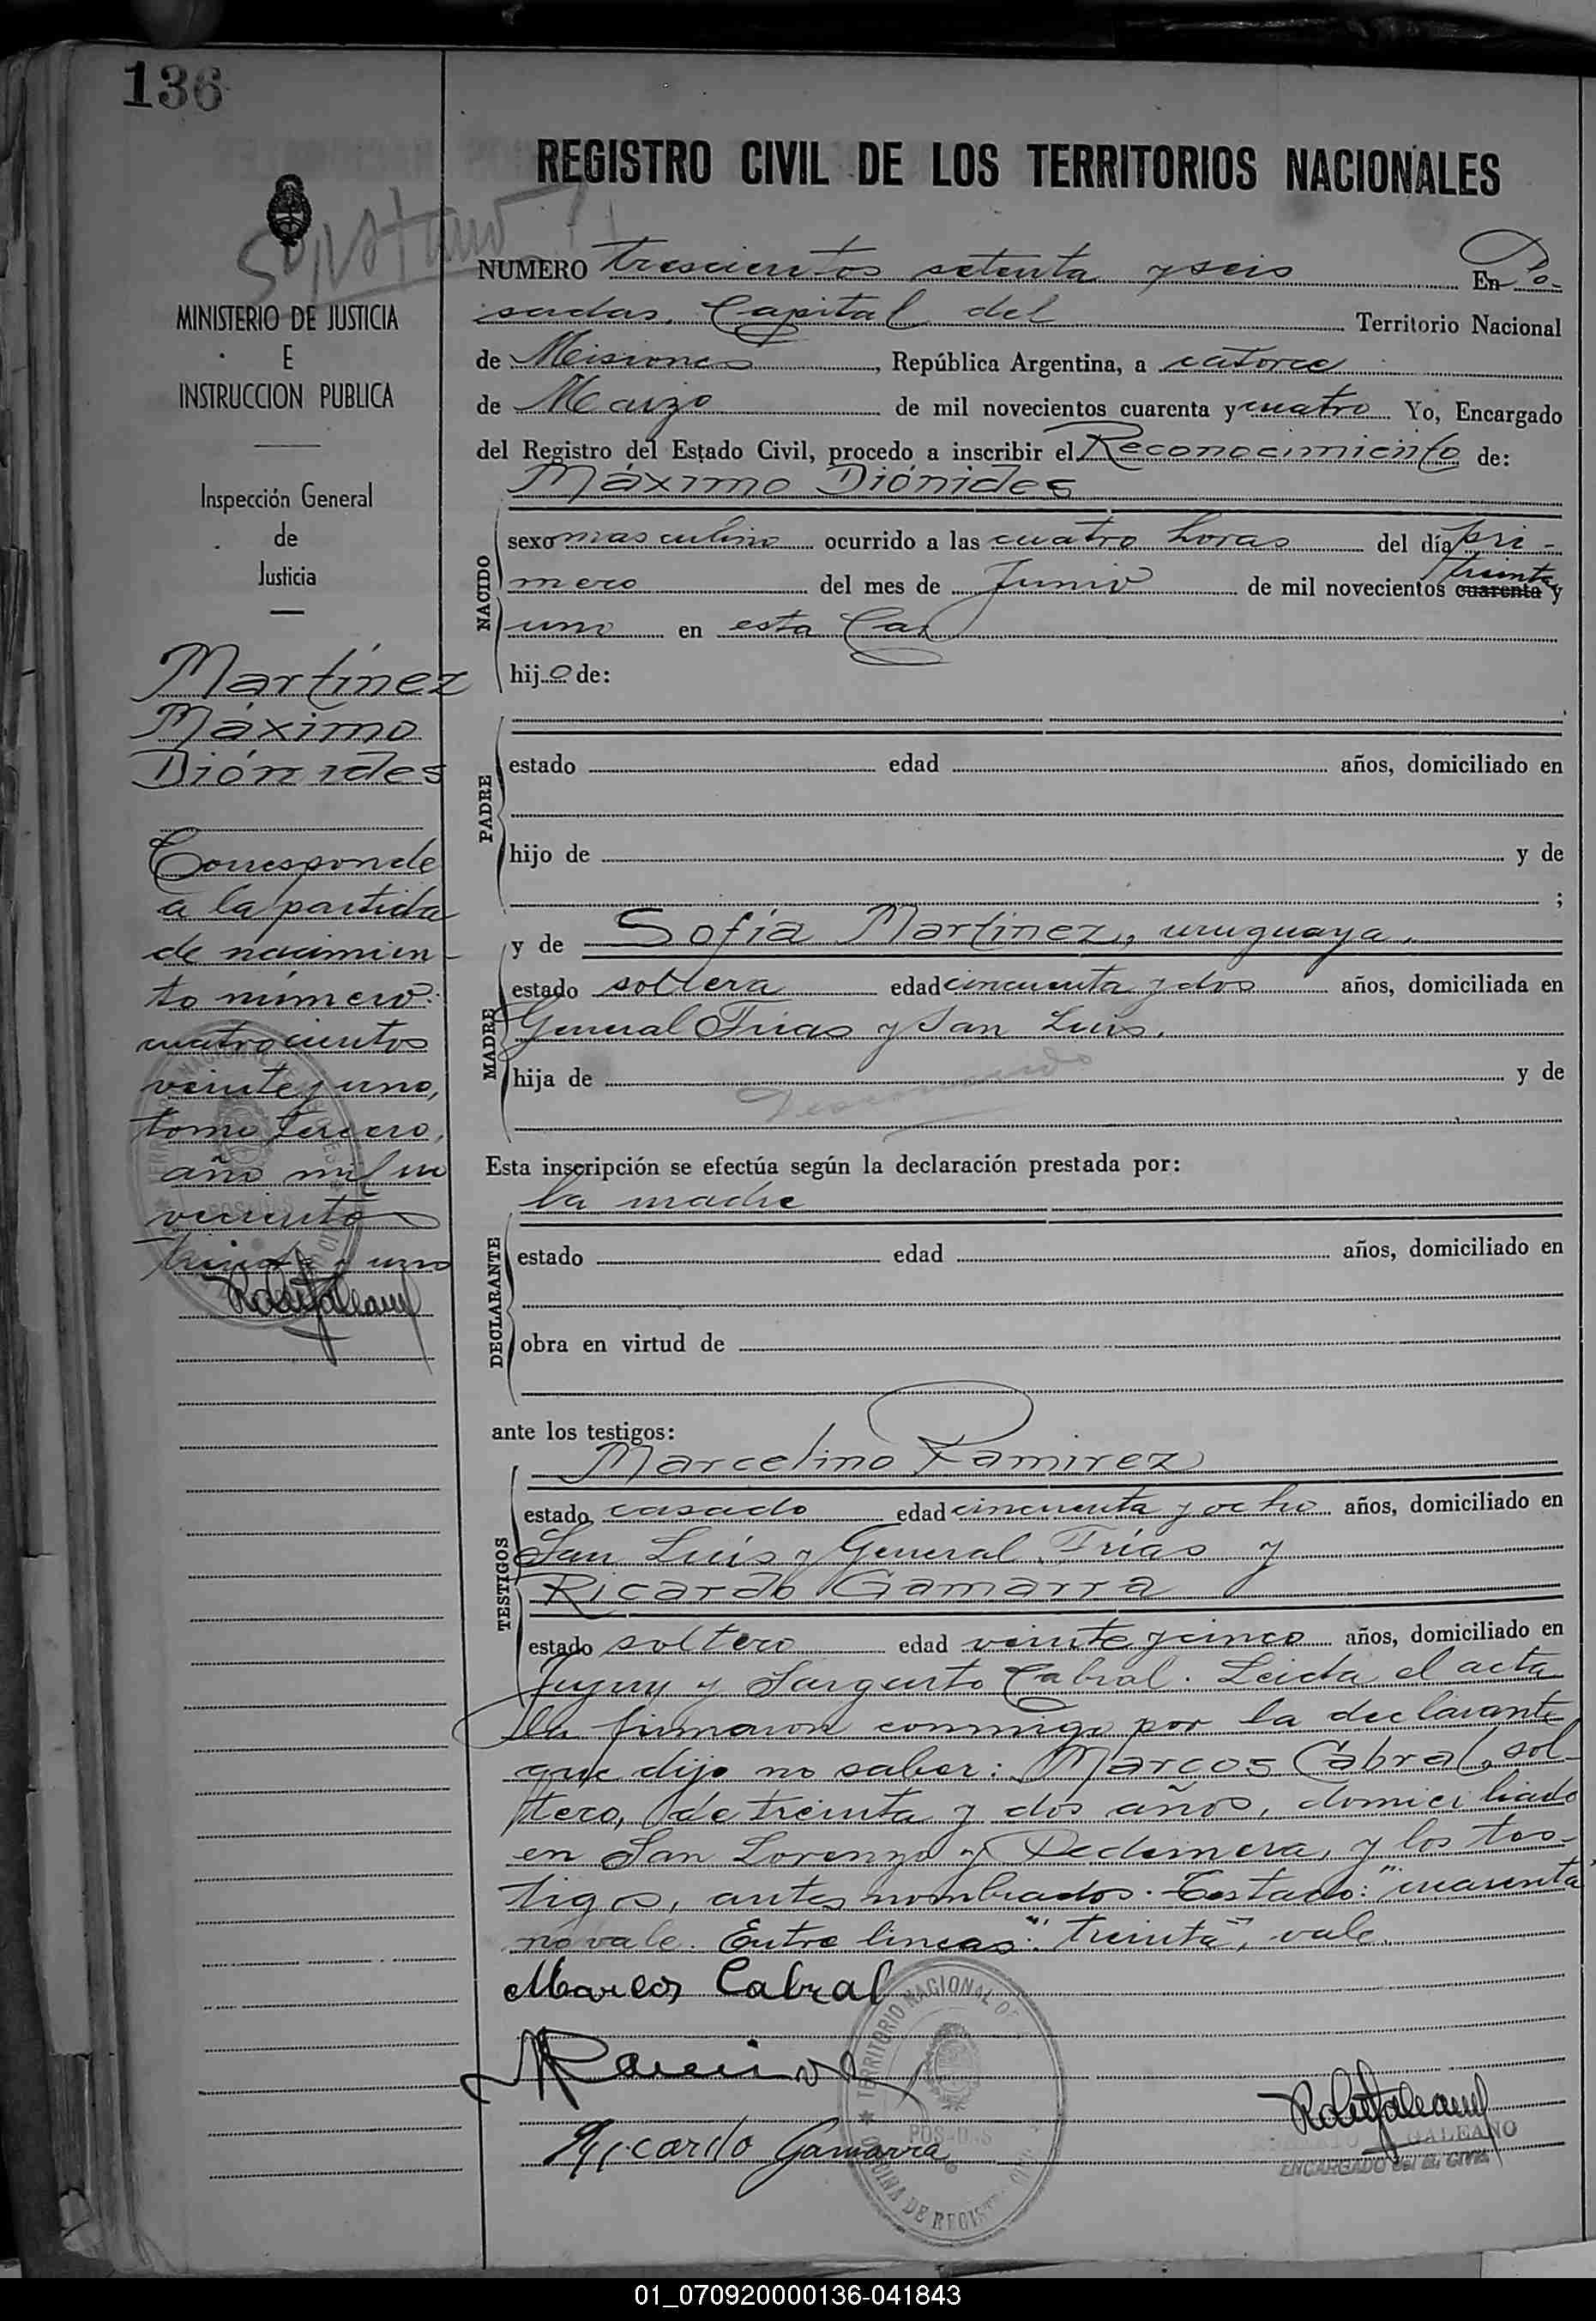 136
REGISTRO CIVIL DE LOS TERRITORIOS NACIONALES
MINISTERIO DE JUSTICIA
E
INSTRUCCION PUBLICA
Inspección General
de
Justicia
Martínez
Máximo
Diónides
Corresponde
a la partida
de nacimien-
to número:
cuatrocientos
veinte y uno,
tomo tercero,
año mil no
vecientos
treinta y uno
NUMERO trescientos setenta y seis En Po-
sadas, Capital del Territorio Nacional
de Misiones, República Argentina, a catorce
de Marzo de mil novecientos cuarenta y cuatro Yo, Encargado
del Registro del Estado Civil, procedo a inscribir el Reconocimiento de:
Máximo Diónides
NACIDO
sexo masculino ocurrido a las cuatro horas del día pri-
mero del mes de Junio de mil novecientos cuarenta treinta y
uno en esta Cap
hijo de:
PADRE
estado edad años, domiciliado en
hijo de y de
;
MADRE
y de Sofía Martínez, uruguaya,
estado soltera edad cincuenta y dos años, domiciliada en
General Frias y San Luis.
hija de y de
Desconocido
Esta inscripción se efectúa según la declaración prestada por:
la madre
DECLARANTE
estado edad años, domiciliado en
obra en virtud de
ante los testigos:
Marcelino Ramirez
TESTIGOS
estado casado edad cincuenta y ocho años, domiciliado en
San Luis y General Frías y
Ricardo Gamarra
estado soltero edad veinte y cinco años, domiciliado en
Jujuy y Sargento Cabral. Leida el acta
la firmaron conmigo por la declarante
que dijo no saber: Marcos Cabral, sol-
tero, de treinta y dos años, domiciliado
en San Lorenzo y Pedernera, y los tes-
tigos, antes nombrados. Testado: "cuarenta
no vale. Entre lineas: "treinta", vale.
Marcos Cabral
Ricardo Gamarra
TERRITORIO NACIONAL DE
POSADAS
OFICINA DE REGIST
GALEANO
ENCARGADO del R. CIVIL
01_070920000136-041843